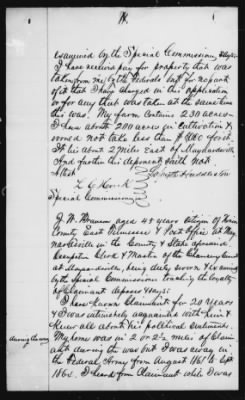 examined by the Special Commissioner, &
I have received pay for property that was
taken from me by the Federals but for no part
of it that I have charged in this application
or for any that was taken at the same time
this was. My farm contains 230 acres
I have about 200 acres in cultivation &
would not take less than for it.
It lies about 2 miles East of Maynardville
And further this deponent saith not.
Attest
Special Commissioner
J. W. aged 45 years Citizen of Union
County East Tennessee & Post office at May-
nardville in the County & State aforesaid.
Occupation Clerk & Master of the Chancery Court
at Maynardville, being duly sworn & examined
by the Special Commissioner touching the loyalty
of Claimant deposes & says:
I have known Claimant for 20 years
& I was intimately acquainted with him &
knew all about his political sentiments.
during the war
My home was in 2 or 2½ miles of Claim-
ant during the war but I was away in
the Federal Army from August 1861 to
1865. I heard from Claimant while I was